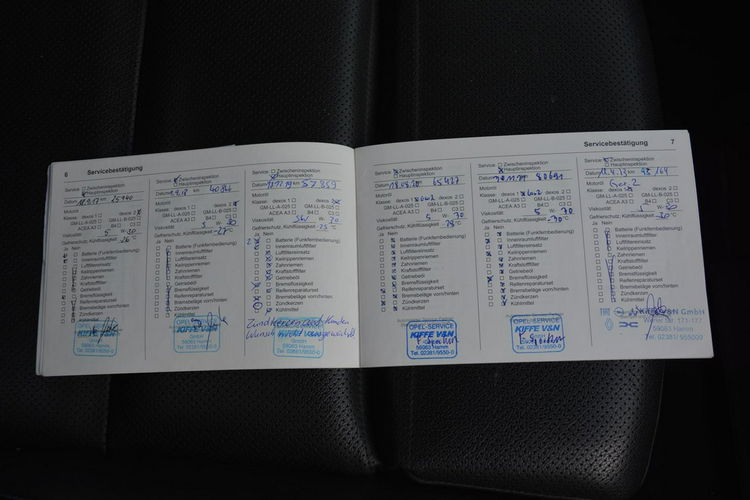 6 Servicebestätigung
Service: Zwischeninspektion
Hauptinspektion
Datum 11.9.17 km 25940
Motoröl
Klasse: dexos 1 dexos 2
GM-LL-A-025 GM-LL-B-025
ACEA A3 B4 C3
Viskosität 5 W- 30
Gefrierschutz, Kühlflüssigkeit -26 °C
Ja Nein
Batterie (Funkfernbedienung)
Innenraumluftfilter
Luftfiltereinsatz
Keilrippenriemen
Zahnriemen
Kraftstofffilter
Getriebeöl
Bremsflüssigkeit
Reifenreparaturset
Bremsbeläge vorn/hinten
Zündkerzen
Kühlmittel
Service: Zwischeninspektion
Hauptinspektion
km 40846
Motoröl
Klasse: dexos 1 dexos 2
GM-LL-A-025 GM-LL-B-025
ACEA A3 B4 C3
Viskosität 5 W- 30
Gefrierschutz, Kühlflüssigkeit -27 °C
Ja Nein
Batterie (Funkfernbedienung)
Innenraumluftfilter
Luftfiltereinsatz
Keilrippenriemen
Zahnriemen
Kraftstofffilter
Getriebeöl
Bremsflüssigkeit
Reifenreparaturset
Bremsbeläge vorn/hinten
Zündkerzen
Kühlmittel
OPEL-SERVICE
KIFFE V&N
59063 Hamm
Tel. 02381/9550-0
Service: Zwischeninspektion
Hauptinspektion
Datum km 57359
Motoröl
Klasse: dexos 1 dexos 2
GM-LL-A-025 GM-LL-B-025
ACEA A3 B4 C3
Viskosität 5W W- 30
Gefrierschutz, Kühlflüssigkeit -25 °C
Ja Nein
Batterie (Funkfernbedienung)
Innenraumluftfilter
Luftfiltereinsatz
Keilrippenriemen
Zahnriemen
Kraftstofffilter
Getriebeöl
Bremsflüssigkeit
Reifenreparaturset
Bremsbeläge vorn/hinten
Zündkerzen
Kühlmittel
Zündkerzen auf Kunden
Wunsch nicht ausgewechselt
GmbH
59063 Hamm
Tel. 02381/9550-0
Servicebestätigung 7
Service: Zwischeninspektion
Hauptinspektion
Datum 18.09.20 km 65477
Motoröl
Klasse: dexos 1 dexos 2
GM-LL-A-025 GM-LL-B-025
ACEA A3 B4 C3
Viskosität 5 W- 30
Gefrierschutz, Kühlflüssigkeit -25 °C
Ja Nein
Batterie (Funkfernbedienung)
Innenraumluftfilter
Luftfiltereinsatz
Keilrippenriemen
Zahnriemen
Kraftstofffilter
Getriebeöl
Bremsflüssigkeit
Reifenreparaturset
Bremsbeläge vorn/hinten
Zündkerzen
Kühlmittel
OPEL-SERVICE
KIFFE V&N
59063 Hamm
Tel. 02381/9550-0
Service: Zwischeninspektion
Hauptinspektion
Datum km 80691
Motoröl
Klasse: dexos 1 dexos 2
GM-LL-A-025 GM-LL-B-025
ACEA A3 B4 C3
Viskosität 5 W- 30
Gefrierschutz, Kühlflüssigkeit -30 °C
Ja Nein
Batterie (Funkfernbedienung)
Innenraumluftfilter
Luftfiltereinsatz
Keilrippenriemen
Zahnriemen
Kraftstofffilter
Getriebeöl
Bremsflüssigkeit
Reifenreparaturset
Bremsbeläge vorn/hinten
Zündkerzen
Kühlmittel
OPEL-SERVICE
KIFFE V&N
59063 Hamm
Tel. 02381/9550-0
Service: Zwischeninspektion
Hauptinspektion
Datum km
Motoröl
Klasse: dexos 1 dexos 2
GM-LL-A-025 GM-LL-B-025
ACEA A3 B4 C3
Viskosität W- 30
Gefrierschutz, Kühlflüssigkeit °C
Ja Nein
Batterie (Funkfernbedienung)
Innenraumluftfilter
Luftfiltereinsatz
Keilrippenriemen
Zahnriemen
Kraftstofffilter
Getriebeöl
Bremsflüssigkeit
Reifenreparaturset
Bremsbeläge vorn/hinten
Zündkerzen
Kühlmittel
GmbH
Werler Str. 171-177
59063 Hamm
Tel. 02381/ 955009